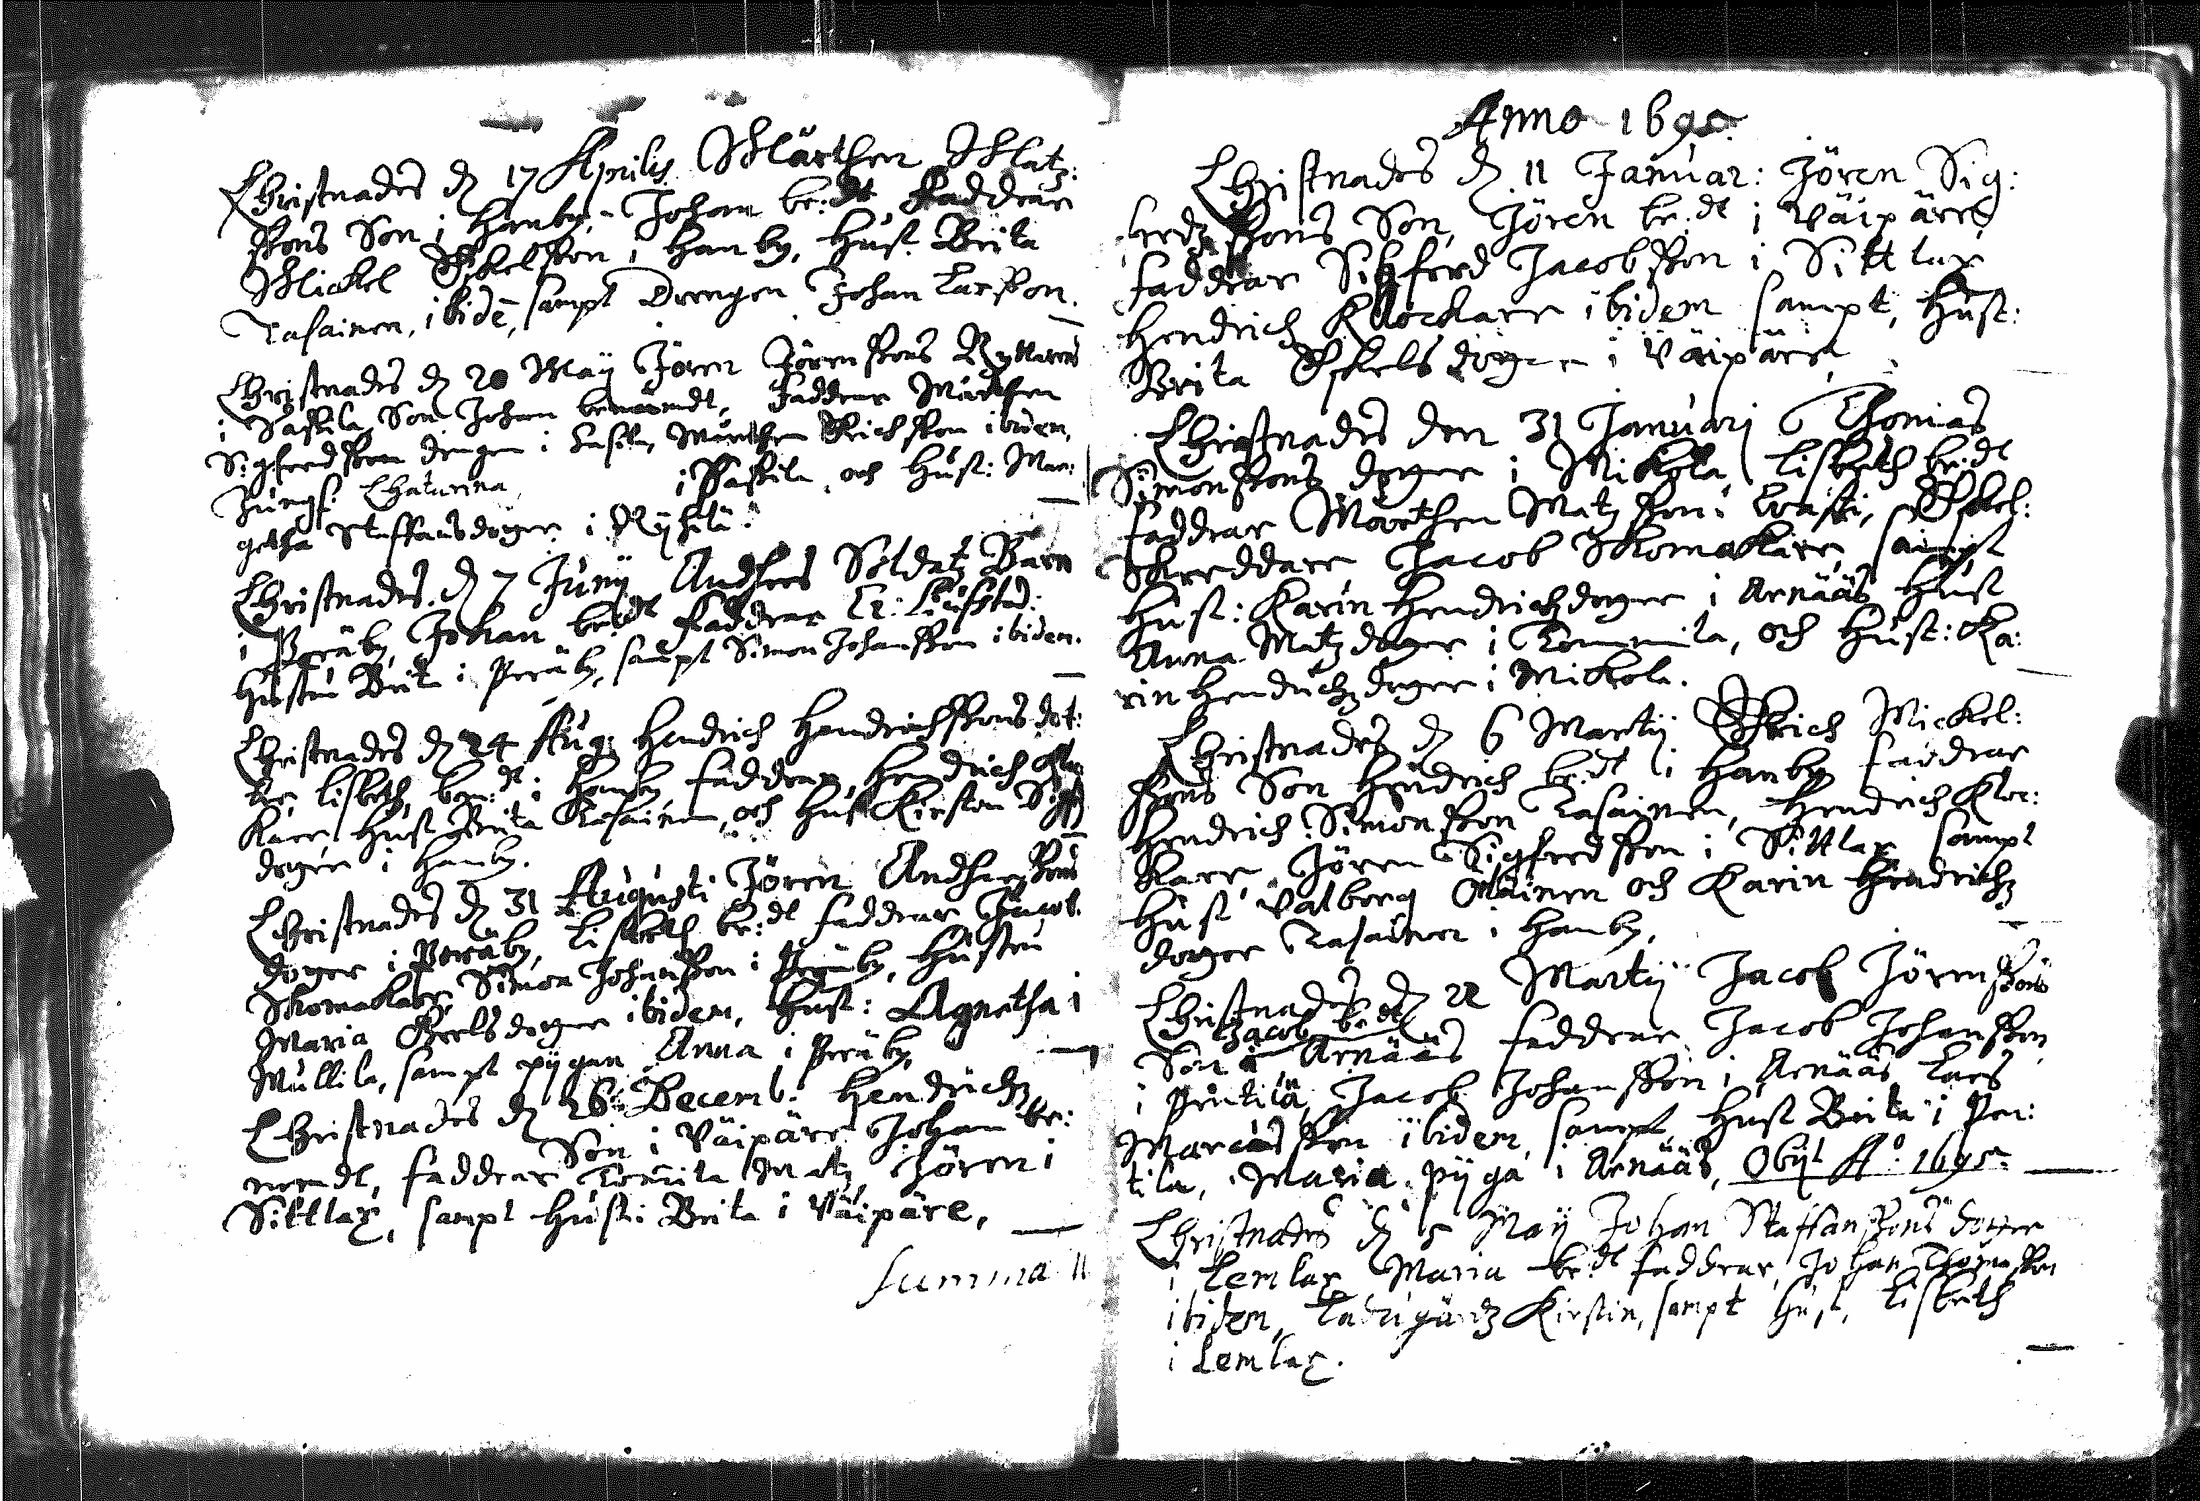 Christnades d 17 Aprilis Mårthen Matz:
sons Son i Hanby, Johan be:dt Faddrar
Mickel Eskelsson i Hanby, Hust Brita
Tasainen, ibidē, sampt Drengen Johan Larsson.
Christnades d 20 Maij Jören Jörenssons Ryttares
i Saskila Son Johan benemdt, Faddrar Mårthen
Sigfredsson drengen i Mårthen Erichsson ibidem,
Jungf: Chatarina i Paskila, och Hust: Mar:
getha Staffansdoger i
Christnades d 7 Junij Anders Soldatz Barn
i Peräby, Johan be:dt Faddrar
Hustru Brita i Peräby, sampt Simon Johansson ibidem.
Christnades d 24 Aug: Hendrich Hendrichssons dot:
ter Lisbeth, ben:dt i Hanby Faddrar, Hendrich Kloc
kare, Hust Brita Tasainen, och Hust Kirstin Sigf
doger i Hanby.
Christnades d 31 Augusti Jören Anderssons
doger i Peräby, Lisbeth be:dt Faddrar Jacob
Skomakare, Simon Johansson i Peräby, Hustru
Maria doger ibidem, Hust: Agnetha i
Mullila, sampt pygan Anna i Peräby,
Christnades d 26 Decemb: Hendrichz
Son i Väipäre Johan be:
nemdt, Faddrar Tomila Matz, Jören i
Sittlax, sampt Hust: Brita i Väipäre,
Summa 11
Anno 1695
Christnades d 11 Januar: Jören Sig:
fredzsons Son, Jören be:dt i Väipäre,
Faddrar Sigferd Jacobsson i Sittlax
Hendrich Klockare ibidem sampt, Hust:
Brita Eskelsdoger i Väipäre
Christnades den 31 Januarj Thomas
Simonssons doger i Mikola Lisbeth be:dt
Faddrar Mårthen Matzson i Eskel:
Skreddare Jacob Skomakare, sampt
Hust: Karin Hendrichzdoger i Arnääs Hust
Anna Matzdoger i Tommila, och Hust: Ka:
rin Hendrichzdoger i Mikola.
Christnades d 6 Martij Erich Mickel:
sons Son Hendrich be:dt i Hanby Faddrar
Hendrich Simonsson Tasainen, Hendrich Kloc:
kare, Jören Sigfredsson i Sittlax sampt
Hust Valborg och Karin Hendrichz
doger Tasainen i Hanby,
Christnades d 22 Martij Jacob Jörenssons
Jacob be:dt
Son i Arnääs Faddrar Jacob Johansson
i Pentilä, Jacob Johansson i Arnääs Lars
Marcusson ibidem sampt Hust Brita i Pen:
tila, Maria pyga i Arnääs, Obijt A:o 1695
Christnades d 5 Maij Johan Staffanssons doger
i Lemlax Maria be:dt Faddrar, Johan Thomasson
ibidem, Kirstin, sampt Hust, Lisbeth
i Lemlax.